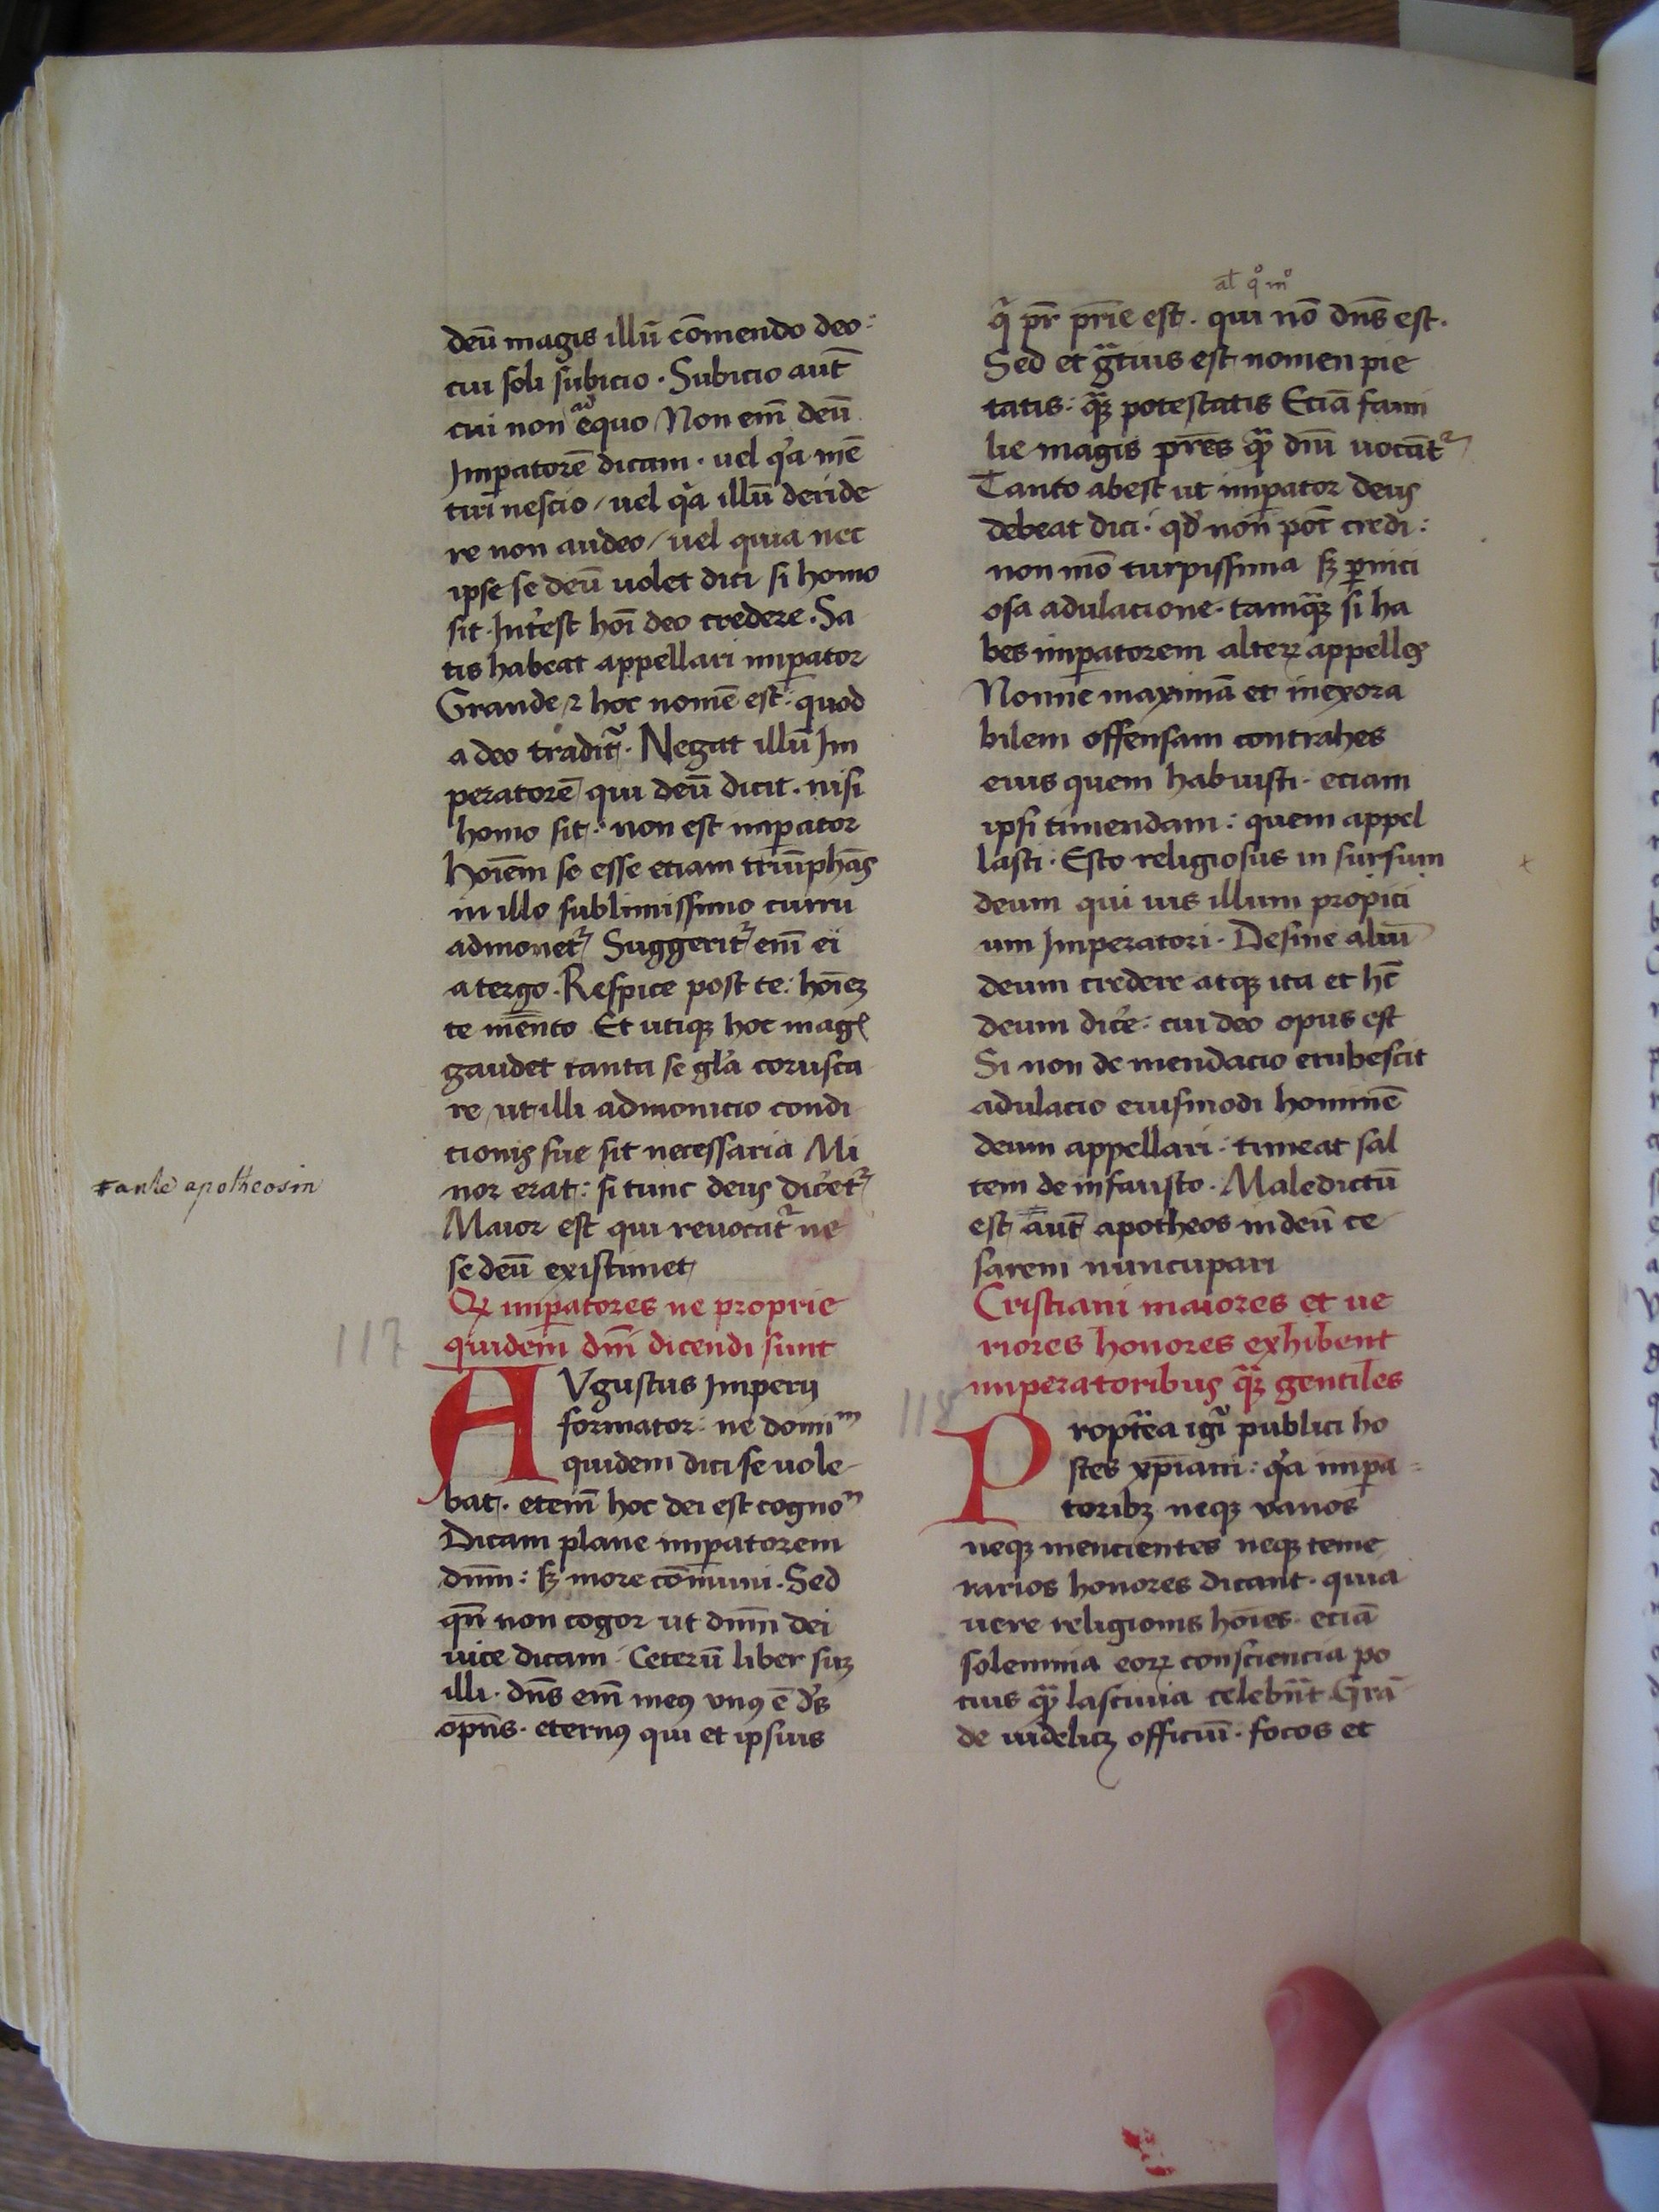 deū magis illū cōmendo deo:
cui soli subicio. Subicio aut̄
cui non ad equo / Non em̄ deū
Imꝑatorē dicam. uel qͥa mē
tiri nescio / uel qͥa illū deride
re non audeo / uel quia nec
ipse se deū uolet dici si homo
sit. Int̓est hoī deo credere. Sa
tis habeat appellari imꝑator
Grande ⁊ hoc nomē est: quod
a deo tradit᷑. Negat illū Im
peratorē qui deū dicit. nisi
homo sit. non est imꝑator
Hoīem se esse etiam triūphās
in illo sublimissimo curru
admonet᷑ Suggerit᷑ em̄ ei
a tergo. Respice post te: hoīeꝫ
te mēnto Et utiqꝫ hoc magꝭ
gaudet tanta se gl̓a corusca
re / ut illi admonicio condi
cionis sue sit necessaria Mi
ante apotheosin
nor erat: si tunc deus dic̓et᷑
Maior est qui reuocat᷑ ne
se deū existimet
Qꝛ imꝑatores ne proprie
117
quidem dn̄i dicendi sunt
AVgustus Imperij
formator: ne domi᷑ᵐ
quidem dici se uole
bat. etem̄ hoc dei est cognoᵐ
Dicam plane imꝑatorem
dnm̄: sꝫ more cōmuni. Sed
qn̄ non cogor ut dnm̄ dei
uice dicam. Ceterū liber suꝫ
illi. dn̄s em̄ meꝯ vnꝯ ē d̓s
opn̄s. eternꝯ qui et ipsius
al̄ qͦ mͦ
qͣ pr̄ pr̄ie est. qui nō dn̄s est.
Sed et gͣtius est nomen pie
tatis: qͣꝫ potestatis Eciā fami
lie magis pr̄es qͣꝫ dn̄i uocāt᷑
Tanto abest ut imꝑator deus
debeat dici: qd̓ non pōt credi:
non mō turpissima sꝫ ꝑnici
osa adulacione. tamqͣꝫ si ha
bes imꝑatorem alteꝝ appelles
Nonne maximā et inexora
bilem offensam contrahes
eius quem habuisti. eciam
ipsi timendam: quem appel
lasti. Esto religiosus in sursum
deum qui uis illum propici
um Imperatori. Desine aliū
deum credere atqꝫ ita et hc̄
deum dic̓e: cui deo opus est
Si non de mendacio erubescit
adulacio eiusmodi hominē
deum appellari: timeat sal
tem de infausto. Maledictū
est aut̄ apotheos in deū ce
sarem nuncupari
Cristiani maiores et ue
riores honores exhibent
imperatoribus qͣꝫ gentiles
118
Propt̓ea igr̄ publici ho
stes xp̄iani: qͥa imꝑa
toribꝫ neqꝫ vanos
neqꝫ mencientes neqꝫ teme
rarios honores dicant. quia
uere religionis hoīes. eciā
solemnia eoꝝ consciencia po
tius qͣꝫ lasciuia celebn̄t Grā
de uidelicꝫ officiū. focos et